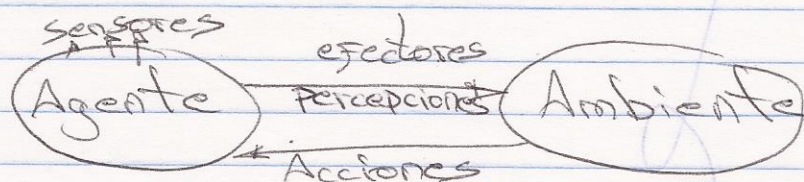 sensores
efectores
Agente percepciones Ambiente
Acciones